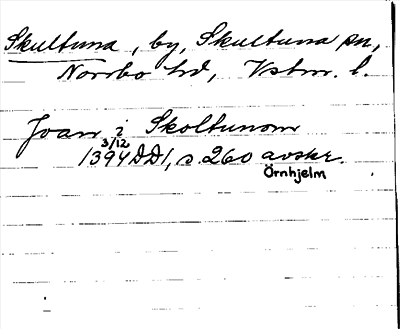 Skultuna, by, Skultuna sn,
Norrbo hd, Vstm. l.
Joan i Skoltunom
3/12
1394 DD1, s. 260 avskr.
Örnhjelm